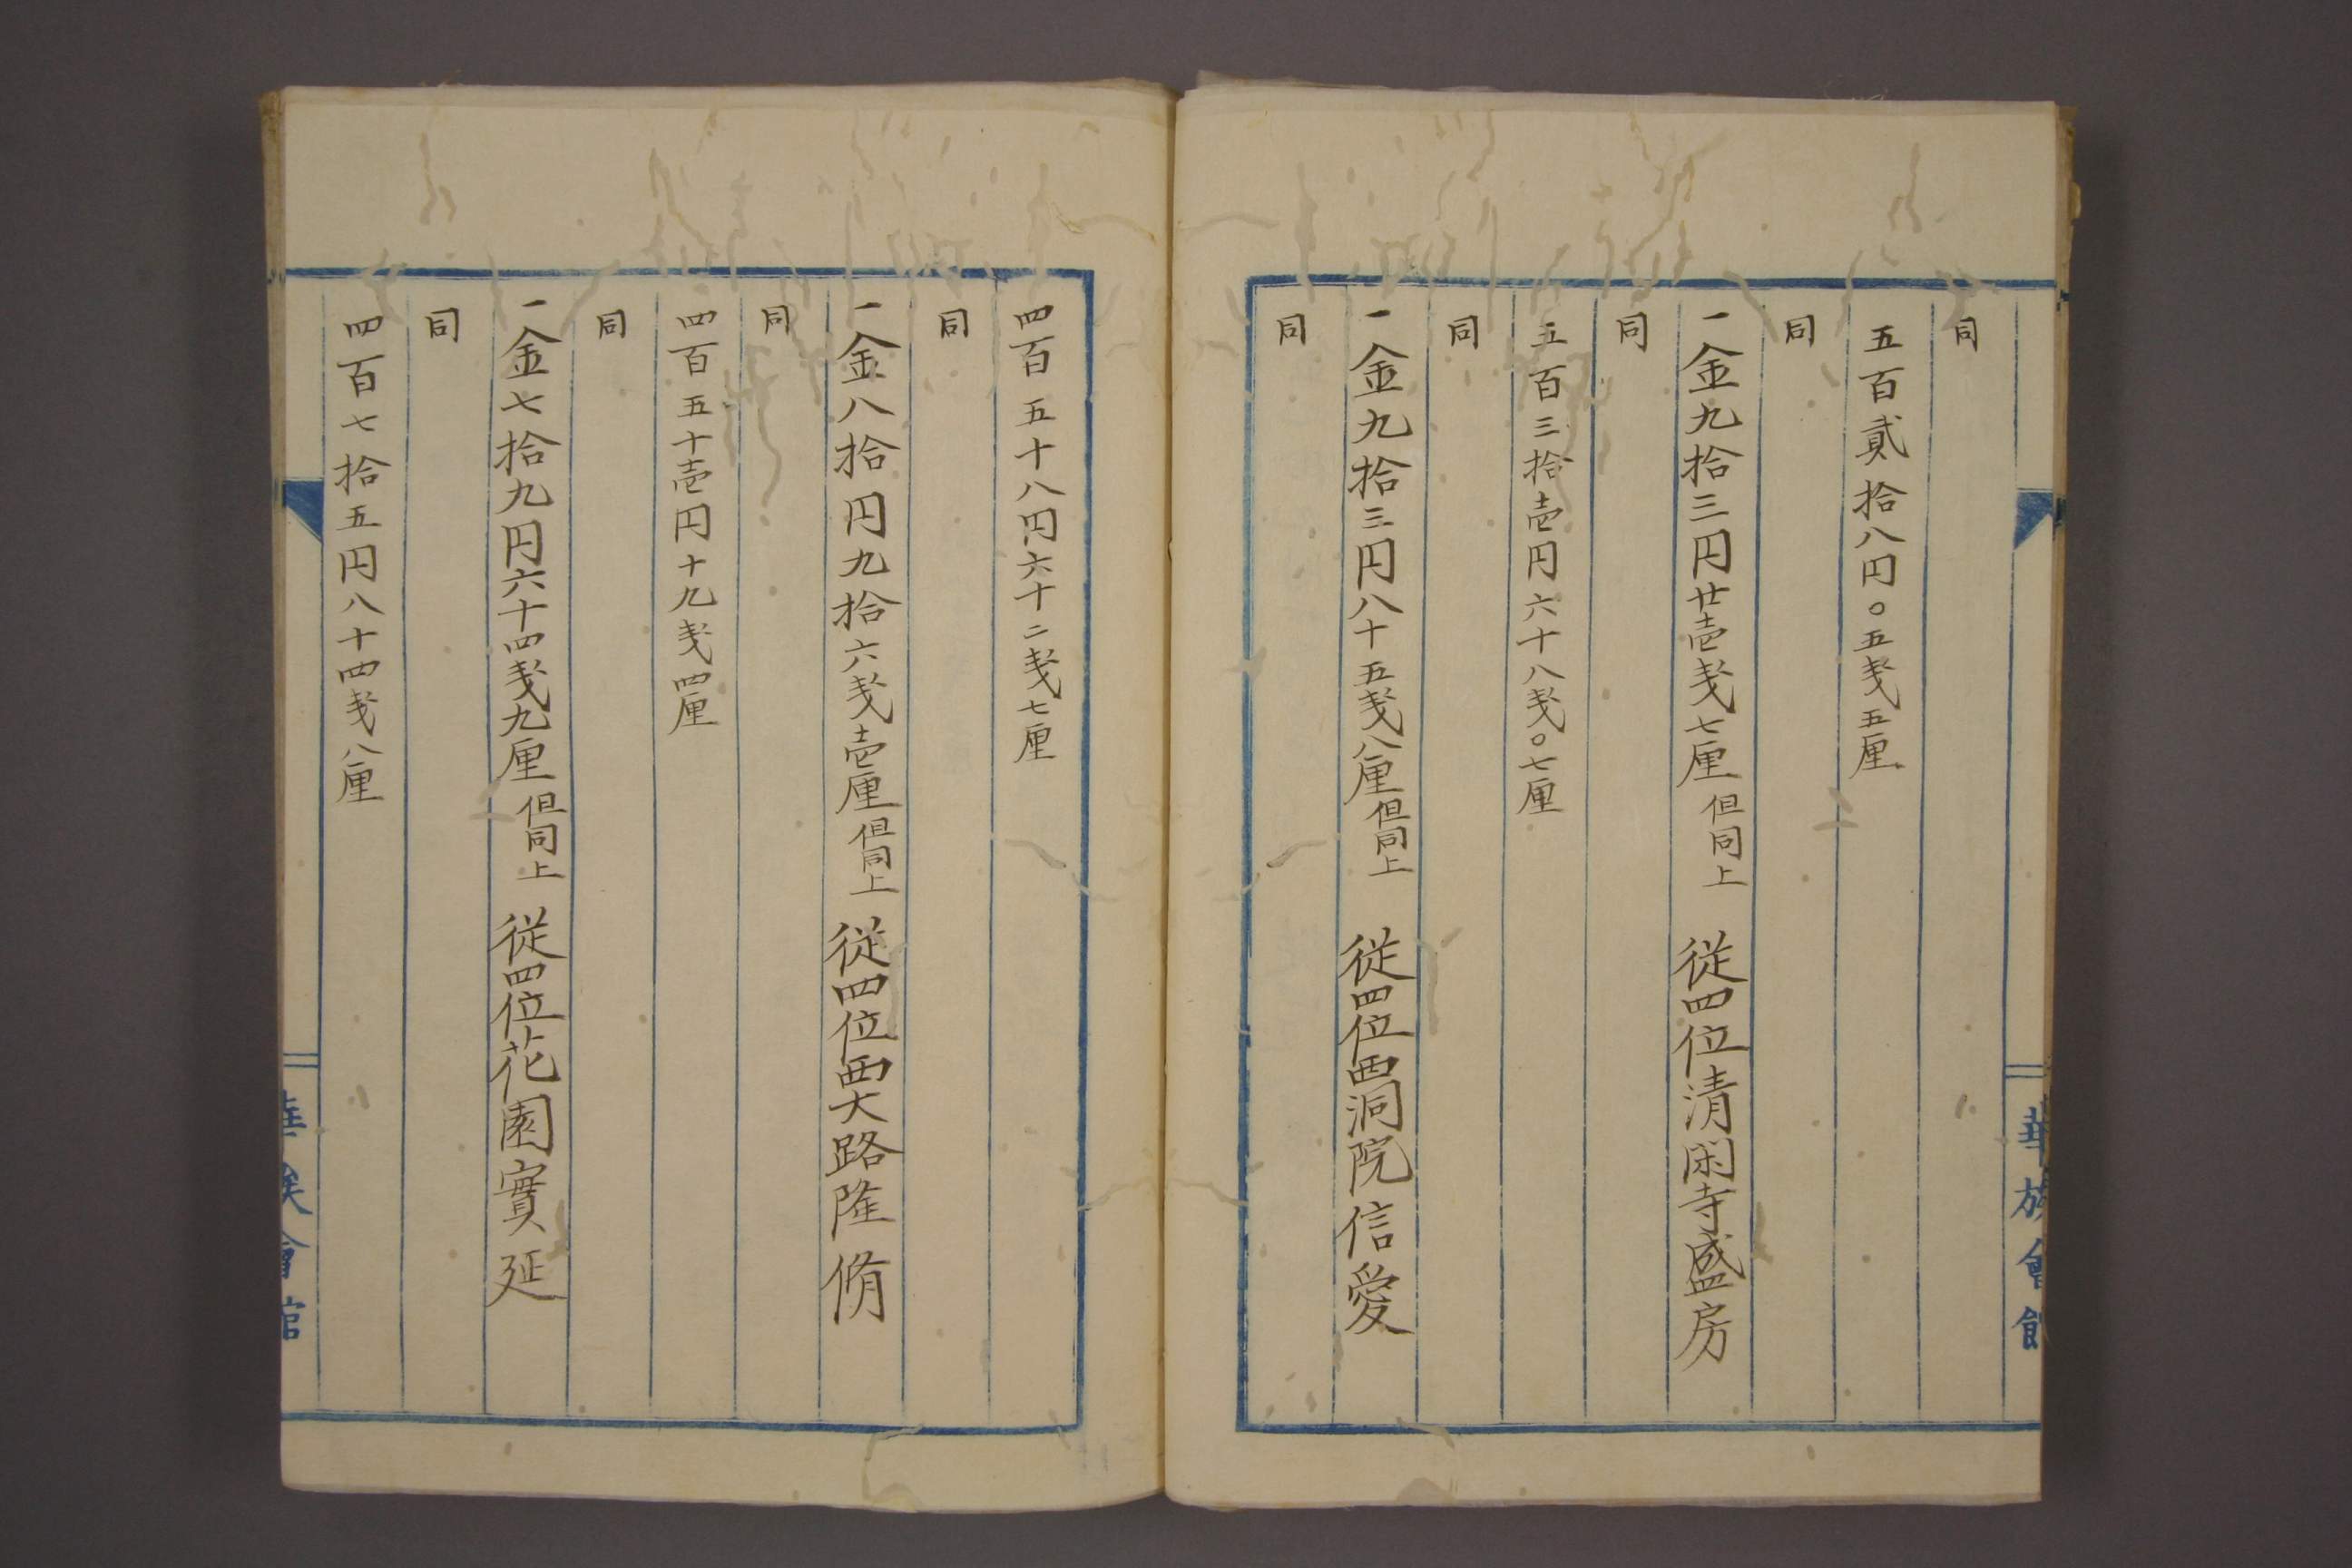 同
五百貳拾八円〇五戔五厘
同
一金九拾三円廿壱戔七厘 但同上 従四位清閑寺盛房
同
五百三拾壱円六十八戔〇七厘
同
一金九拾三円八十五戔八厘 但同上 従四位西洞院信愛
同
華族會館
四百五十八円六十二戔七厘
同
一金八拾円九拾六戔壱厘 但同上 従四位西大路隆脩
同
四百五十壱円十九戔四厘
同
一金七拾九円六十四戔九厘 但同上 従四位花園實延
同
四百七拾五円八十四戔八厘
華族會館